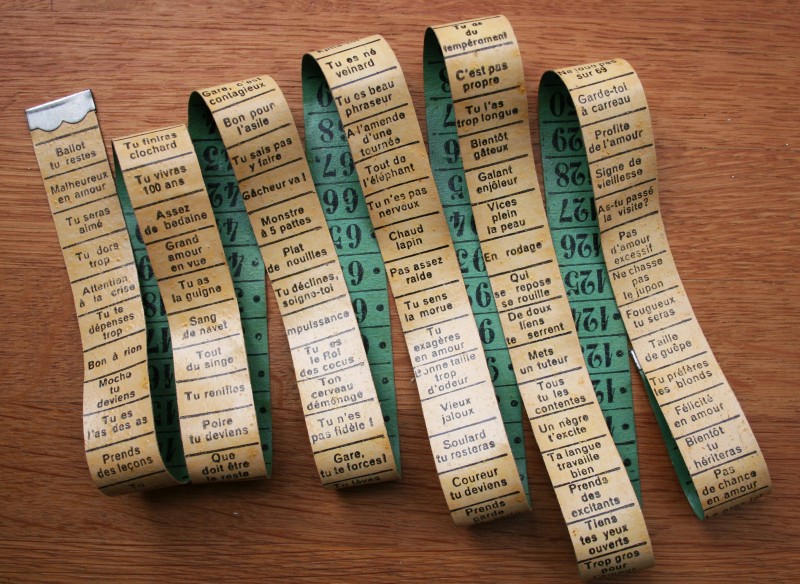 Ballot
tu restes
Malheureux
en amour
Tu seras
aimé
Tu dors
trop
Attention
à la crise
Tu te
dépenses
trop
Bon à rien
Moche
tu
deviens
Tu es
l'as des as
Prends
des leçons
Tu
Tu finiras
clochard
Tu vivras
100 ans
Assez
de bedaine
Grand
amour
en vue
Tu as
la guigne
Sang
de navet
Tout
du singe
Tu renifles
Poire
tu deviens
Que
doit être
le reste
Gare, c'est
contagieux
Bon pour
l'asile
Tu sais pas
y faire
Gâcheur va !
Monstre
à 5 pattes
Plat
de nouilles
Tu déclines,
soigne-toi
Impuissance
Tu es
le Roi
des cocus
Ton
cerveau
déménage
Tu n'es
pas fidèle !
Gare,
tu te forces !
Tu lèves
Tu es né
veinard
Tu es beau
phraseur
A l'amende
d'une
tournée
Tout de
l'éléphant
Tu n'es pas
nerveux
Chaud
lapin
Pas assez
raide
Tu sens
la morue
Tu
exagères
en amour
Bonne taille
trop
d'odeur
Vieux
jaloux
Soulard
tu resteras
Coureur
tu deviens
Prends
garde
Tu as
du
tempérament
C'est pas
propre
Tu l'as
trop longue
Bientôt
gâteux
Galant
enjôleur
Vices
plein
la peau
En rodage
Qui
se repose
se rouille
De doux
liens
te serrent
Mets
un tuteur
Tous
tu les
contentes
Un nègre
t'excite
Ta langue
travaille
bien
Prends
des
excitants
Tiens
tes yeux
ouverts
Trop gros
pour
Ne joue pas
sur 69
Garde-toi
à carreau
Profite
de l'amour
Signe de
vieillesse
As-tu passé
la visite?
Pas
d'amour
excessif
Ne chasse
pas
le jupon
Fougueux
tu seras
Taille
de guêpe
Tu préfères
les blonds
Félicité
en amour
Bientôt
tu
hériteras
Pas
de chance
en amour
67
66
65
64
29
28
127
126
125
124